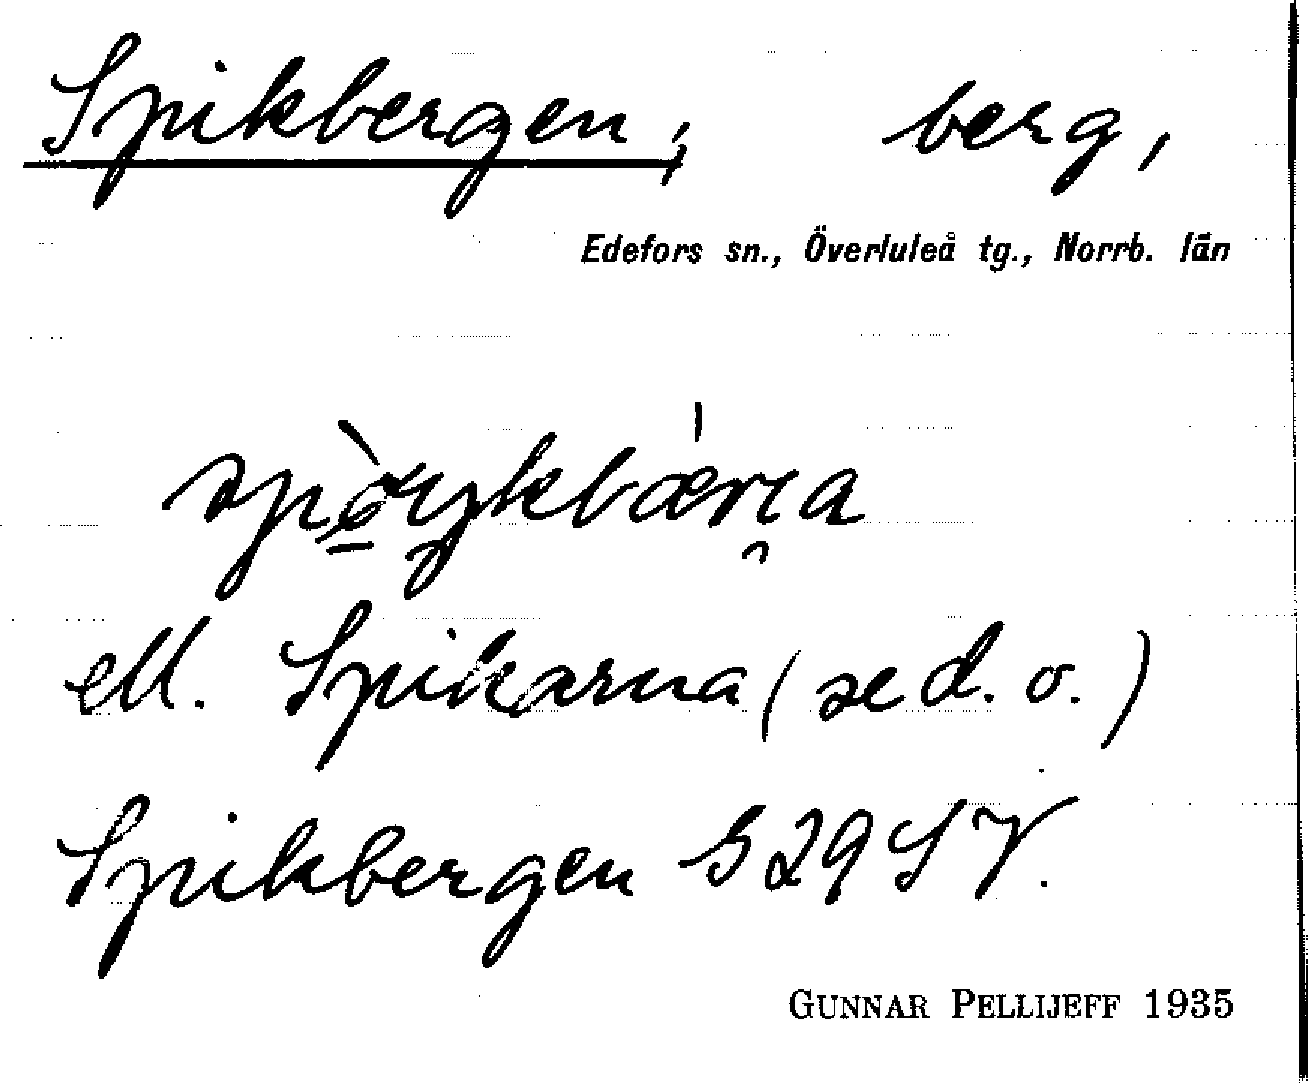 Spikbergen, berg,
Edefors sn., Överluleå tg., Norrb. län
ell. Spikarna (se d. o.)
Spikbergen S 29 SV.
GUNNAR PELLIJEFF 1935